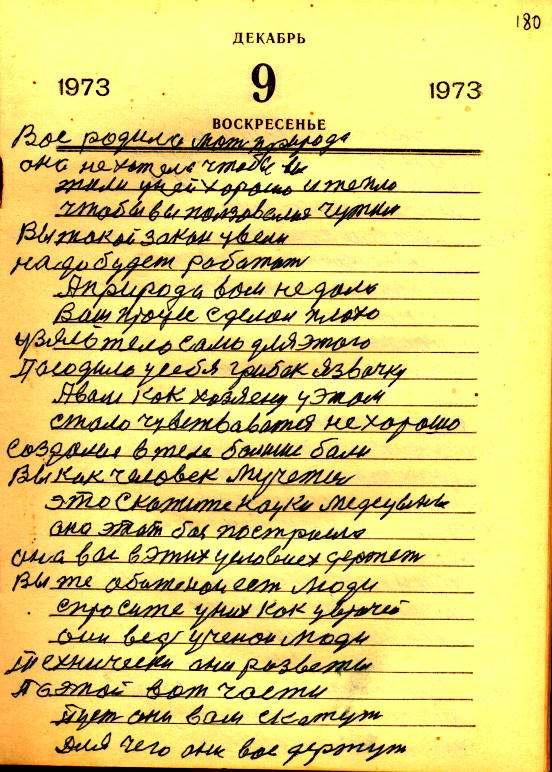 180
ДЕКАБРЬ
1973 9 1973
ВОСКРЕСЕНЬЕ
Вас родила мат природа
она не хотела чтобы вы
жили у ней хорошо и тепло
чтобы вы ползовалися
Вы такой закон увели
надо будет работат
А природа вам не дала
Ваш процес сделал плохо
узяло тело само для этого
Посодило у себя грибок язвочку
А вам как хозяену у этом
стало чувствоватся не хорошо
создалися в теле болшие бали
Вы как человек мучетеся
это скажите науки медецыны
она этат бой построила
она вас в этих условиех держет
Вы же обиженои ест люди
спросите у них как у врачей
они ведь ученои люди
технически они розветы
По этой вот части
Пуст они вам скажут
для чего они вас держут